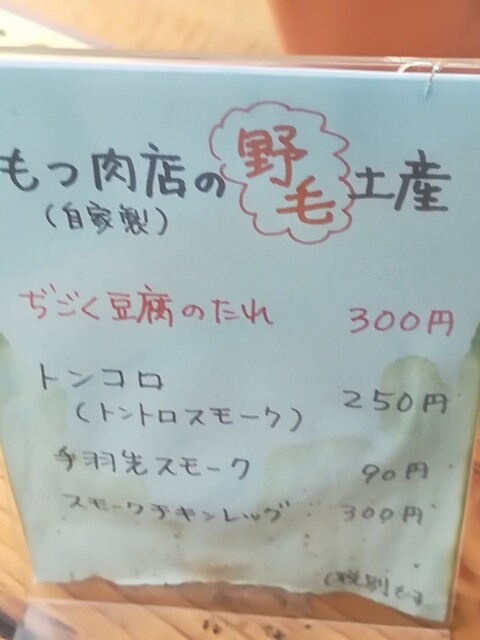 もつ肉店の野毛土産
(自家製)
ぢごく豆腐のたれ 300円
トンコロ
(トントロスモーク) 250円
手羽先スモーク 90円
スモークチキンレッグ 300円
(税別で